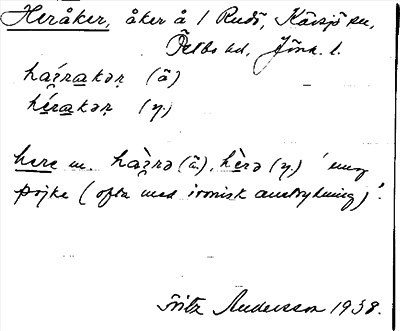 Heråker, åker å / Rudö, Kävsjö sn,
Östbo hd, Jönk. l.
ha̤ìrakər (ä)
hèrakər (y.)
here m. ha̤ìrə (ä.), hèrə (y.) 'ung
pojke (ofta med ironisk anstrykning)'.
Fritz Andersson 1938.